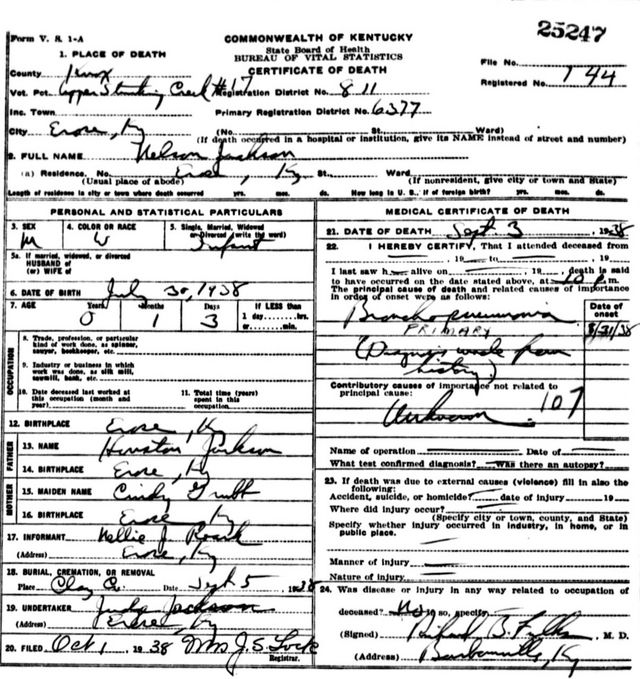 25247
Form V. S. 1-A
COMMONWEALTH OF KENTUCKY
State Board of Health
BUREAU OF VITAL STATISTICS
CERTIFICATE OF DEATH
File No.
Registered No. 744
1. PLACE OF DEATH
County Knox
Vot. Pct. Upper Stinking Creek #17 Registration District No. 811
Inc. Town Primary Registration District No. 6377
City Erose, Ky (No. St. Ward)
(If death occurred in a hospital or institution, give its NAME instead of street and number)
2. FULL NAME Nelson Jackson
(a) Residence. No. Erose, Ky St. Ward.
(Usual place of abode) (If nonresident, give city or town and State)
Length of residence in city or town where death occurred yrs. mos. ds. How long in U. S. if of foreign birth? yrs. mos. ds.
PERSONAL AND STATISTICAL PARTICULARS
3. SEX 4. COLOR OR RACE 5. Single, Married, Widowed
or Divorced (write the word)
M W Infant
5a. If married, widowed, or divorced
HUSBAND of
(or) WIFE of
6. DATE OF BIRTH July 30, 1938
7. AGE Years Months Days If LESS than
0 1 3 1 day hrs.
or min.
OCCUPATION
8. Trade, profession, or particular
kind of work done, as spinner,
sawyer, bookkeeper, etc.
9. Industry or business in which
work was done, as silk mill,
sawmill, bank, etc.
10. Date deceased last worked at
this occupation (month and
year)
11. Total time (years)
spent in this
occupation
12. BIRTHPLACE Erose, Ky
FATHER
13. NAME Houston Jackson
14. BIRTHPLACE Erose, Ky
MOTHER
15. MAIDEN NAME Cindy Grubb
16. BIRTHPLACE Erose Ky
17. INFORMANT Nellie J. Roark
(Address) Erose, Ky
18. BURIAL, CREMATION, OR REMOVAL
Place Clay Co. Date Sept 5 1938
19. UNDERTAKER Judge Jackson
(Address) Erose, Ky
20. FILED Oct 1 1938 Mrs J. S. Lock
Registrar.
MEDICAL CERTIFICATE OF DEATH
21. DATE OF DEATH Sept 3 1938
22. I HEREBY CERTIFY, That I attended deceased from
, 19 to , 19
I last saw h alive on , 19 , death is said
to have occurred on the date stated above, at 10 P.m.
The principal cause of death and related causes of importance
in order of onset were as follows:
Date of
onset
Bronchopneumonia 8/31/38
PRIMARY
(Diagnosis made from
history)
Contributory causes of importance not related to
principal cause:
Unknown 107
Name of operation Date of
What test confirmed diagnosis? Was there an autopsy?
23. If death was due to external causes (violence) fill in also the
following:
Accident, suicide, or homicide? date of injury 19
Where did injury occur?
(Specify city or town, county, and State)
Specify whether injury occurred in industry, in home, or in
public place.
Manner of injury
Nature of injury
24. Was disease or injury in any way related to occupation of
deceased? No If so, specify
(Signed) M. D.
(Address) Barbourville, Ky